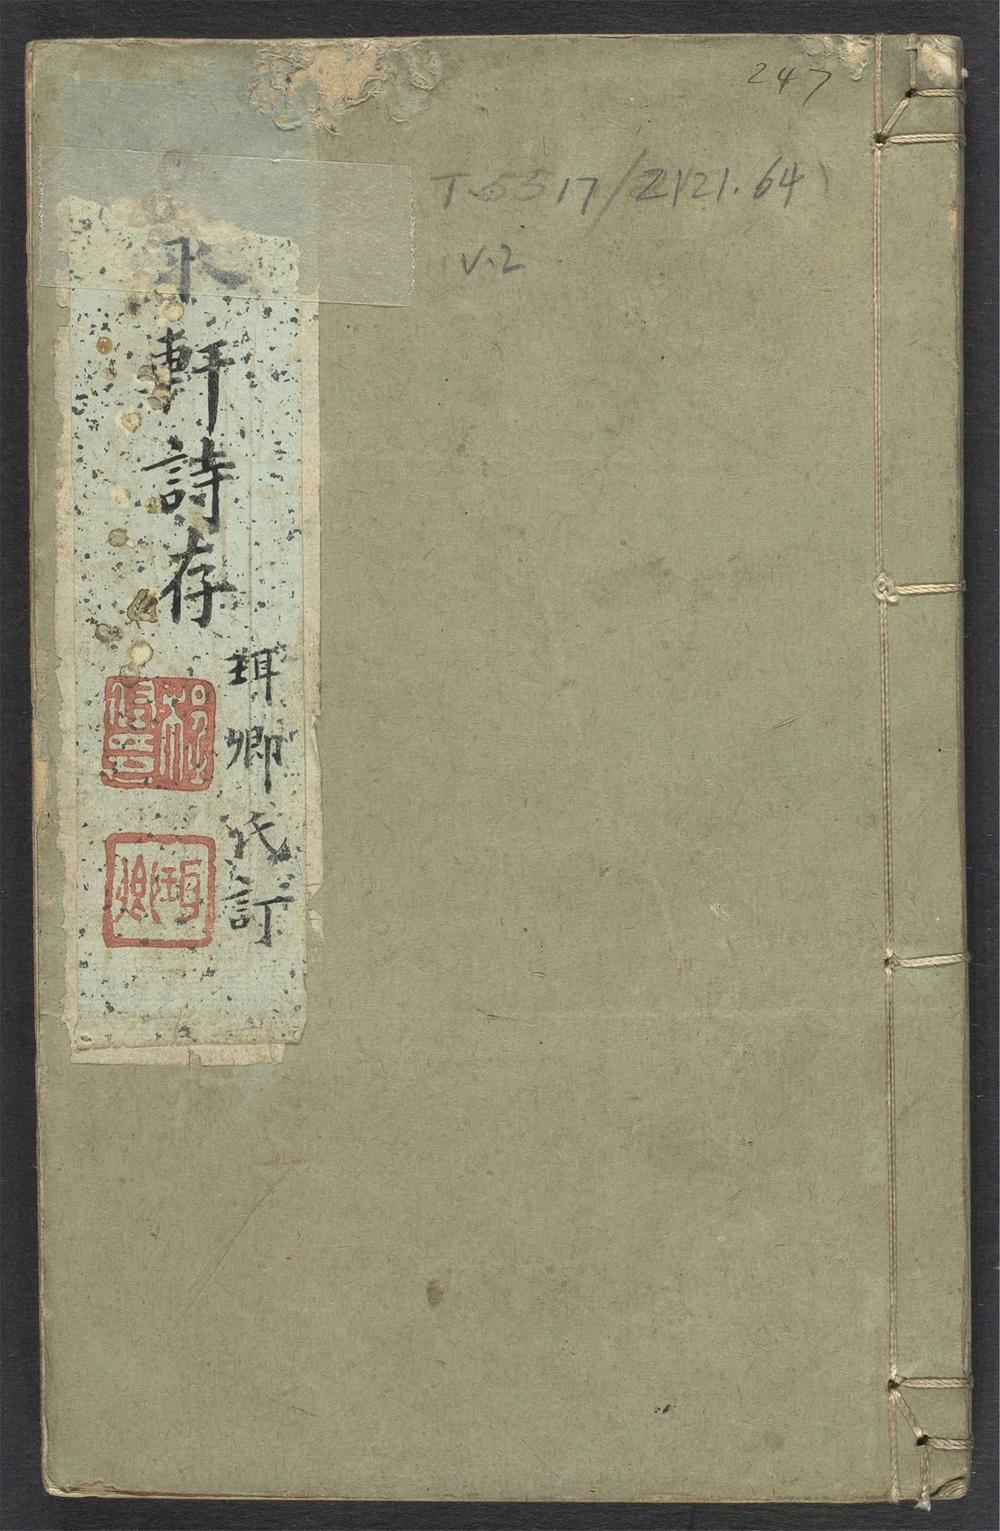 247
T 5517/2121.64
V.2
軒詩存
珥卿氏訂
珥卿